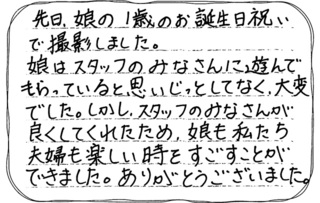 先日、娘の1歳のお誕生日祝い
で撮影しました。
娘はスタッフのみなさんに遊んで
もらっていると思いじっとしてなく、大変
でした。しかし、スタッフのみなさんが
良くしてくれたため、娘も私たち
夫婦も楽しい時をすごすことが
できました。ありがとうございました。